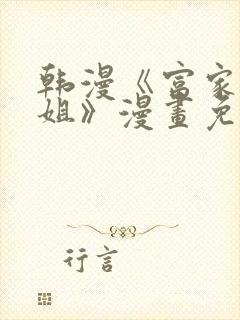 韩漫《富家
姐》漫畫免
行言